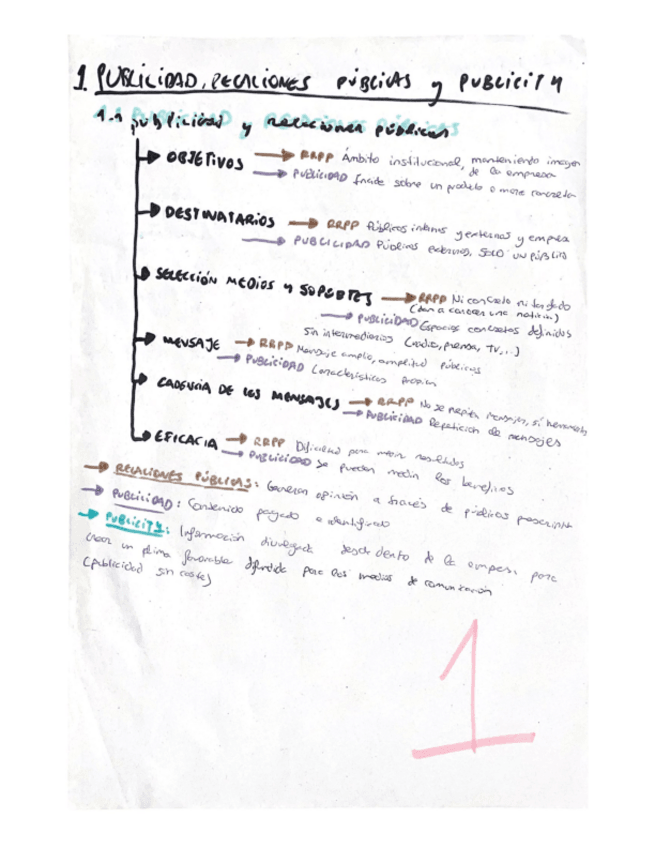 1. PUBLICIDAD, RELACIONES PÚBLICAS y PUBLICITY
1.1 publicidad y relaciones públicas
→ OBJETIVOS → RRPP Ámbito institucional, manteniendo imagen de la empresa
→ PUBLICIDAD Incide sobre un producto o marca concreta
→ DESTINATARIOS → RRPP Públicos internos y externos y empresa
→ PUBLICIDAD Públicos externos, SOLO UN PÚBLICO
→ SELECCIÓN MEDIOS Y SOPORTES → RRPP Ni concreto ni tarifado
(dan a conocer una noticia)
→ PUBLICIDAD Espacios concretos definidos
sin intermediarios (radio, prensa, TV,...)
→ MENSAJE → RRPP Mensaje amplio, amplitud públicos
→ PUBLICIDAD Características propias
→ CADENCIA DE LOS MENSAJES → RRPP No se repiten mensajes, sí
→ PUBLICIDAD Repetición de mensajes
→ EFICACIA → RRPP Dificultad para medir resultados
→ PUBLICIDAD Se pueden medir los beneficios
→ RELACIONES PÚBLICAS: Generan opinión a través de públicos
→ PUBLICIDAD: Contenido pagado e identificado
→ PUBLICITY: Información divulgada desde dentro de la empresa para
crear un clima favorable difundida por los medios de comunicación
(publicidad sin coste)
1